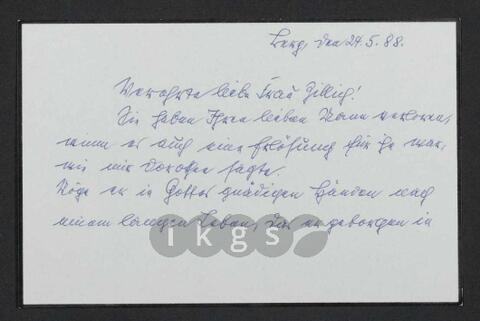 den 24.5.88.
Verehrte liebe Frau Zillich!
Sie haben Ihren lieben Mann verloren,
wenn es auch eine Erlösung für ihn war,
wie mir Dorothea sagte.
Möge er in Gottes gnädigen Händen nach
einem langen Leben, das er geborgen in
ikgs